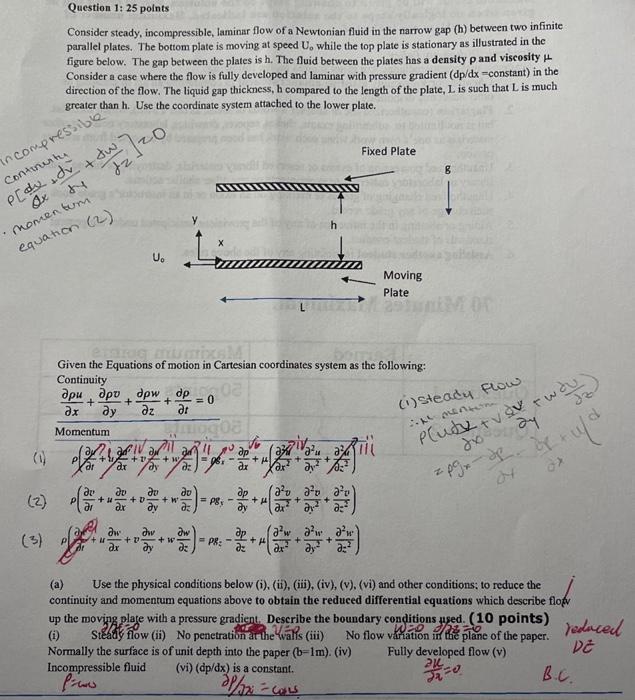 Question 1: 25 points
Consider steady, incompressible, laminar flow of a Newtonian fluid in the narrow gap (h) between two infinite
parallel plates. The bottom plate is moving at speed Uₒ while the top plate is stationary as illustrated in the
figure below. The gap between the plates is h. The fluid between the plates has a density ρ and viscosity μ.
Consider a case where the flow is fully developed and laminar with pressure gradient (dp/dx =constant) in the
direction of the flow. The liquid gap thickness, h compared to the length of the plate, L is such that L is much
greater than h. Use the coordinate system attached to the lower plate.
incompressible
continuity
ρ[du/dx + dv/dy + dw/dz] = 0
· momentum
equation (2)
Fixed Plate
g
y
h
x
Uₒ
Moving
Plate
L
Given the Equations of motion in Cartesian coordinates system as the following:
Continuity
∂ρu/∂x + ∂ρv/∂y + ∂ρw/∂z + ∂ρ/∂t = 0
(i) steady flow
Momentum
(1) ρ(∂u/∂t + u ∂u/∂x + v ∂u/∂y + w ∂u/∂z) = ρgₓ - ∂p/∂x + μ(∂²u/∂x² + ∂²u/∂y² + ∂²u/∂z²) iii
(2) ρ(∂v/∂t + u ∂v/∂x + v ∂v/∂y + w ∂v/∂z) = ρgᵧ - ∂p/∂y + μ(∂²v/∂x² + ∂²v/∂y² + ∂²v/∂z²)
(3) ρ(∂w/∂t + u ∂w/∂x + v ∂w/∂y + w ∂w/∂z) = ρg_z - ∂p/∂z + μ(∂²w/∂x² + ∂²w/∂y² + ∂²w/∂z²)
(a) Use the physical conditions below (i), (ii), (iii), (iv), (v), (vi) and other conditions; to reduce the
continuity and momentum equations above to obtain the reduced differential equations which describe flow
up the moving plate with a pressure gradient. Describe the boundary conditions used. (10 points)
(i) Steady flow (ii) No penetration at the walls (iii) No flow variation in the plane of the paper.
Normally the surface is of unit depth into the paper (b=1m). (iv) Fully developed flow (v)
Incompressible fluid (vi) (dp/dx) is a constant.
∂/∂t=0
V=0
W=0 ∂/∂z=0
reduced
DE
∂u/∂x=0
B.C.
ρ=cons
∂p/∂x = cons